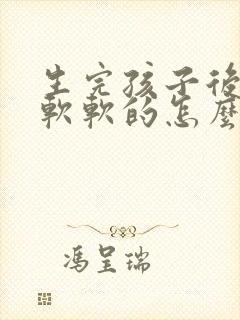 生完孩子後
軟軟的怎麼
馮呈瑞